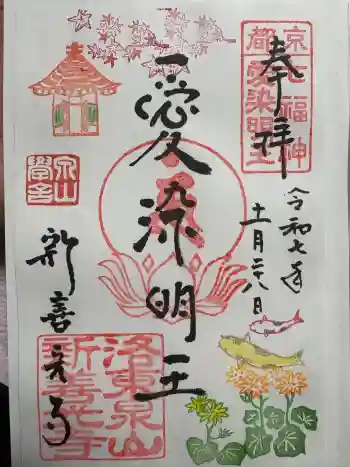 奉拝
京七福神
都愛染明王
令和七年
十一月廿八日
愛染明王
泉山
學舍
新善光寺
洛東泉山
新善光寺